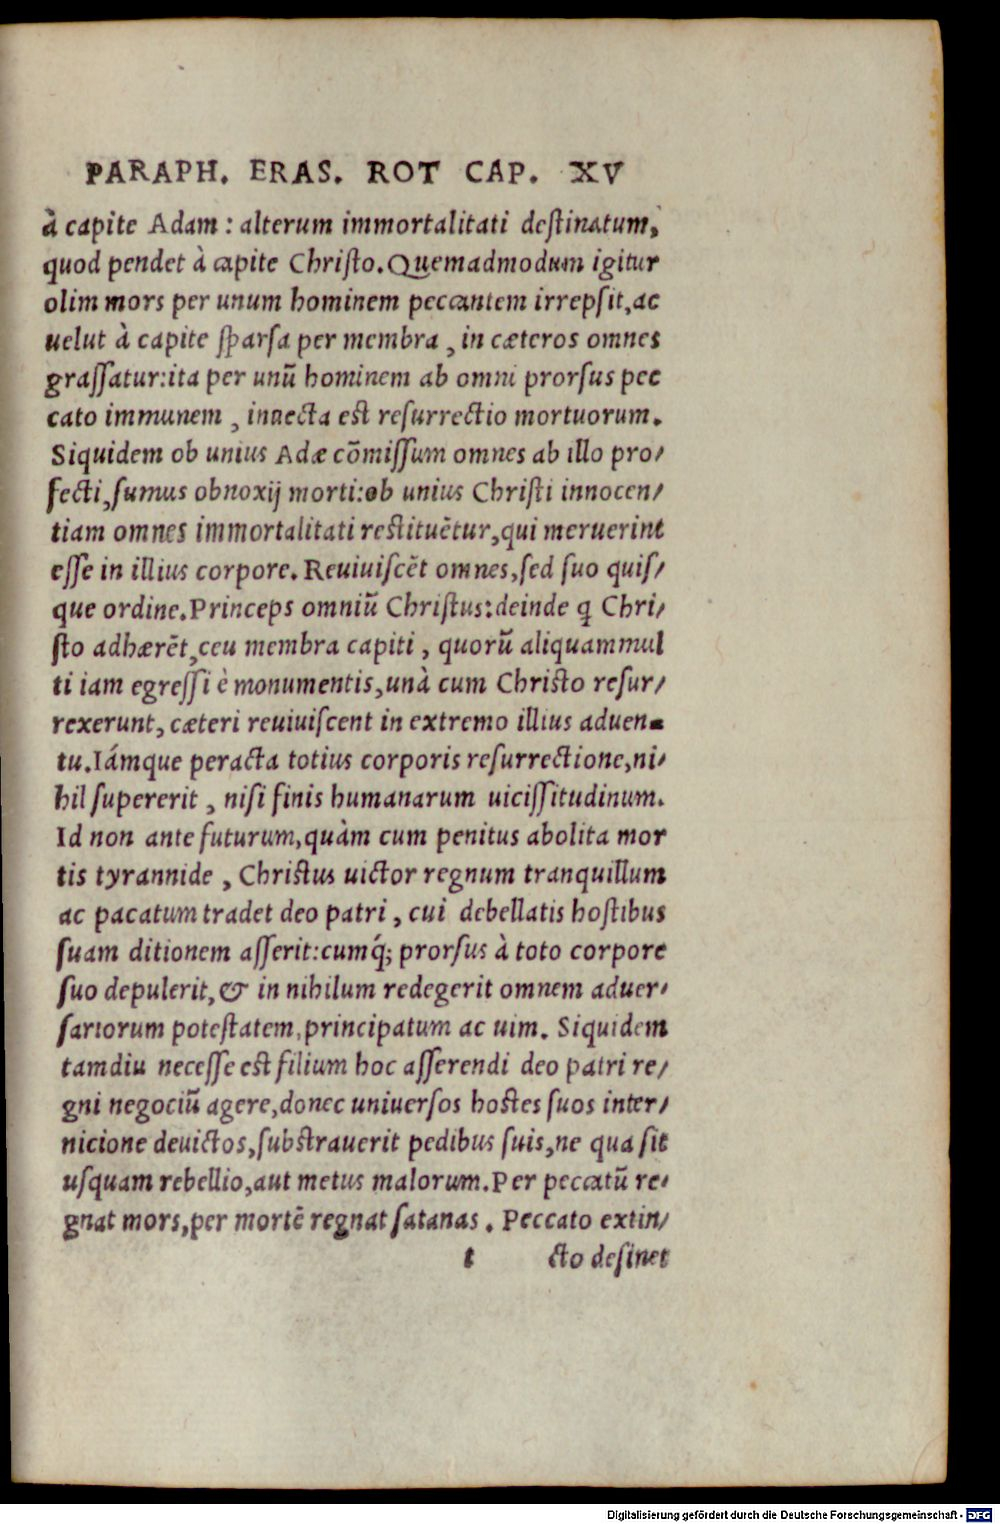 PARAPH. ERAS. ROT CAP. XV
à capite Adam : alterum immortalitati destinatum,
quod pendet à capite Christo. Quemadmodum igitur
olim mors per unum hominem peccantem irrepsit, ac
uelut à capite sparsa per membra , in cæteros omnes
grassatur: ita per unū hominem ab omni prorsus pec
cato immunem , inuecta est resurrectio mortuorum.
Siquidem ob unius Adæ cōmissum omnes ab illo pro/
fecti, sumus obnoxij morti: ob unius Christi innocen/
tiam omnes immortalitati restituētur, qui meruerint
esse in illius corpore. Reuiuiscēt omnes, sed suo quis/
que ordine. Princeps omniū Christus: deinde q̃ Chri/
sto adhærēt, ceu membra capiti , quorū aliquammul
ti iam egressi è monumentis, unà cum Christo resur/
rexerunt, cæteri reuiuiscent in extremo illius aduen-
tu. Iámque peracta totius corporis resurrectione, ni/
hil supererit , nisi finis humanarum uicissitudinum.
Id non ante futurum, quàm cum penitus abolita mor
tis tyrannide , Christus uictor regnum tranquillum
ac pacatum tradet deo patri , cui debellatis hostibus
suam ditionem asserit: cumq́; prorsus à toto corpore
suo depulerit, & in nihilum redegerit omnem aduer/
sariorum potestatem, principatum ac uim. Siquidem
tamdiu necesse est filium hoc asserendi deo patri re/
gni negociū agere, donec uniuersos hostes suos inter/
nicione deuictos, substrauerit pedibus suis, ne qua sit
usquam rebellio, aut metus malorum. Per peccatū re/
gnat mors, per mortē regnat satanas . Peccato extin/
t cto desinet
Digitalisierung gefördert durch die Deutsche Forschungsgemeinschaft - DFG